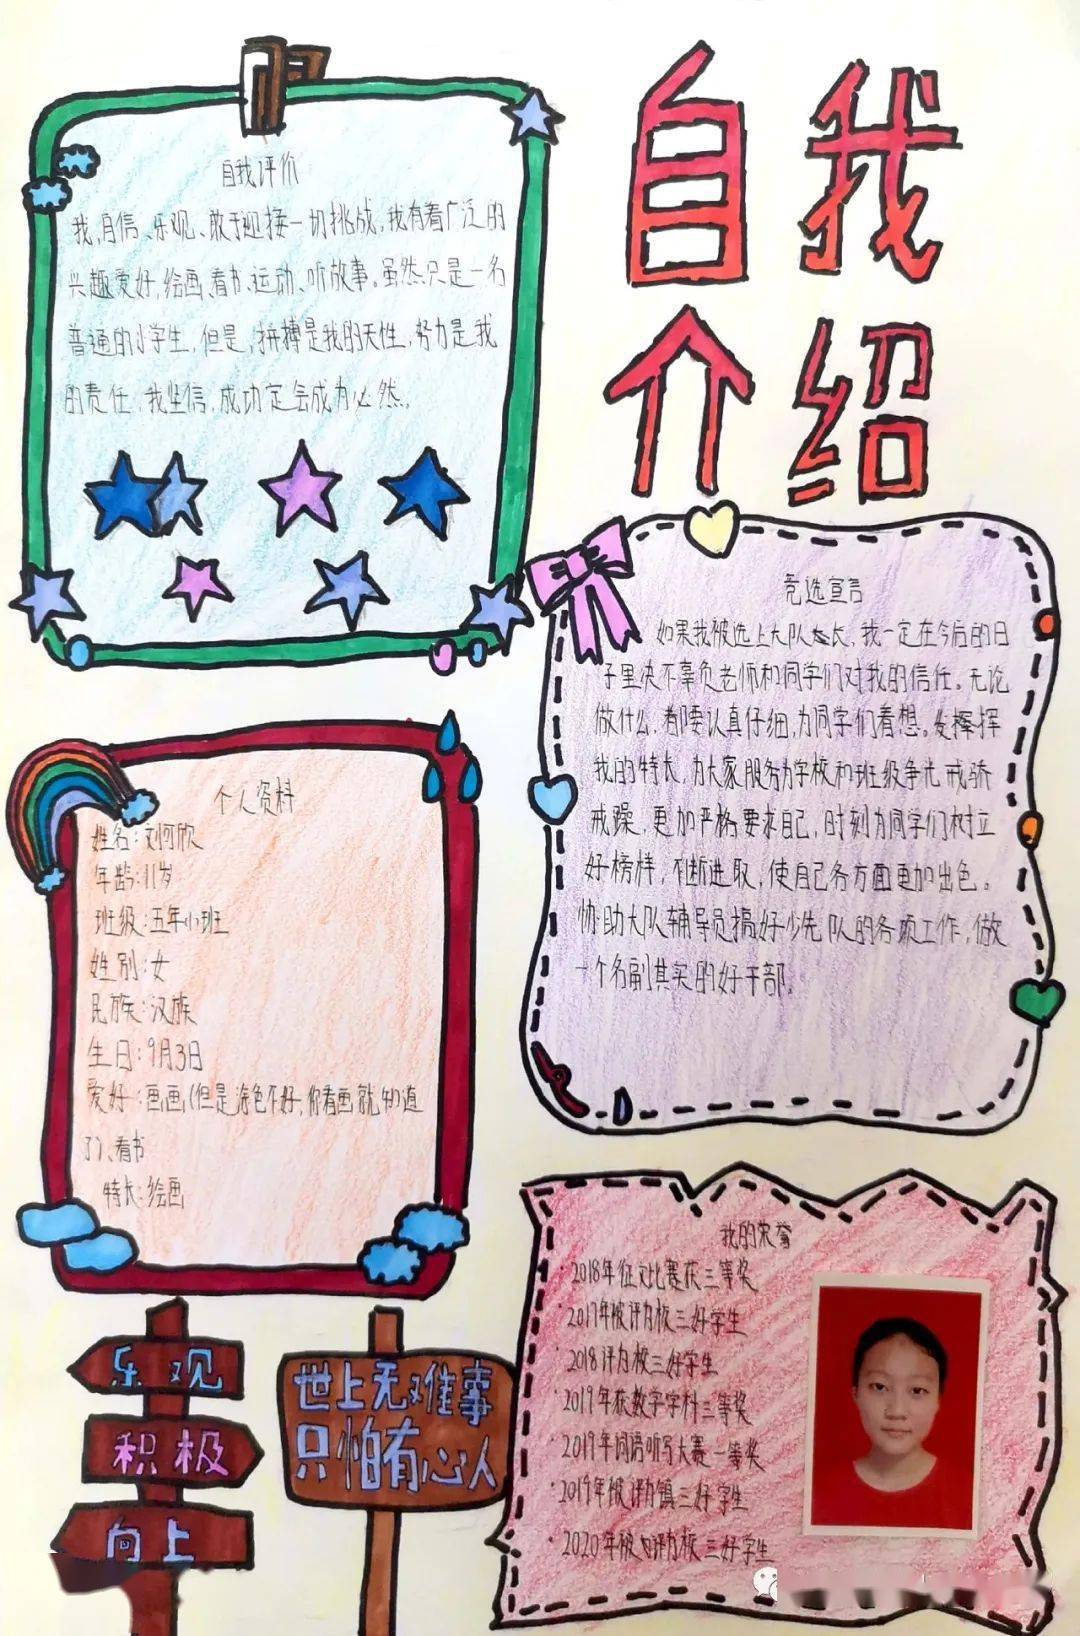 自我
介绍
自我评价
我,自信、乐观、敢于迎接一切挑战,我有着广泛的
兴趣爱好,绘画、看书、运动、听故事。虽然只是一名
普通的小学生,但是,拼搏是我的天性,努力是我
的责任,我坚信,成功定会成为必然。
竞选宣言
如果我被选上大队长,我一定在今后的日
子里决不辜负老师和同学们对我的信任。无论
做什么,都要认真仔细,为同学们着想。发挥
我的特长,为大家服务为学校和班级争光,戒骄
戒躁,更加严格要求自己,时刻为同学们树立
好榜样,不断进取,使自己各方面更加出色。
协助大队辅导员搞好少先队的各项工作,做
一个名副其实的好干部。
个人资料
姓名:刘珂欣
年龄:11岁
班级:五年小班
姓别:女
民族:汉族
生日:9月3日
爱好:画画(但是涂色不好,你看画就知道
了)、看书
特长:绘画
我的荣誉
·2018年征文比赛获三等奖
·2017年被评为校三好学生
·2018评为校三好学生
·2019年获数字学科三等奖
·2019年词语听写大赛一等奖
·2019年被评为镇三好学生
·2020年被评为校三好学生
乐观
积极
向上
世上无难事
只怕有心人